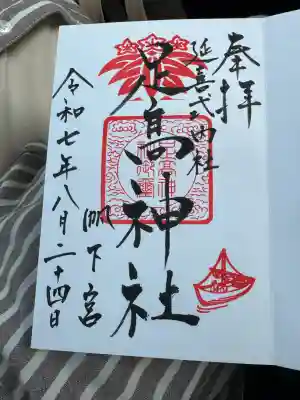 奉拝
延喜式内社
足高神社
帆下宮
令和七年八月二十四日